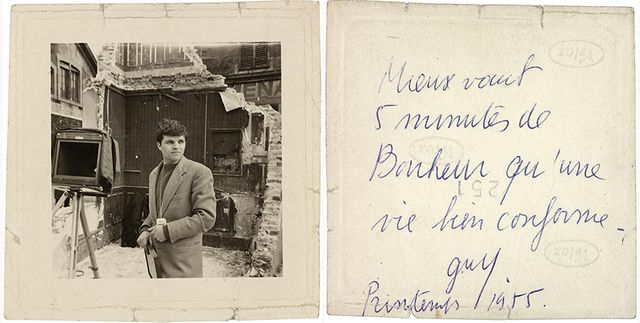 Velox
Mieux vaut
5 minutes de
Bonheur qu'une
251
vie bien conforme.
Velox
guy
Printemps 1955.